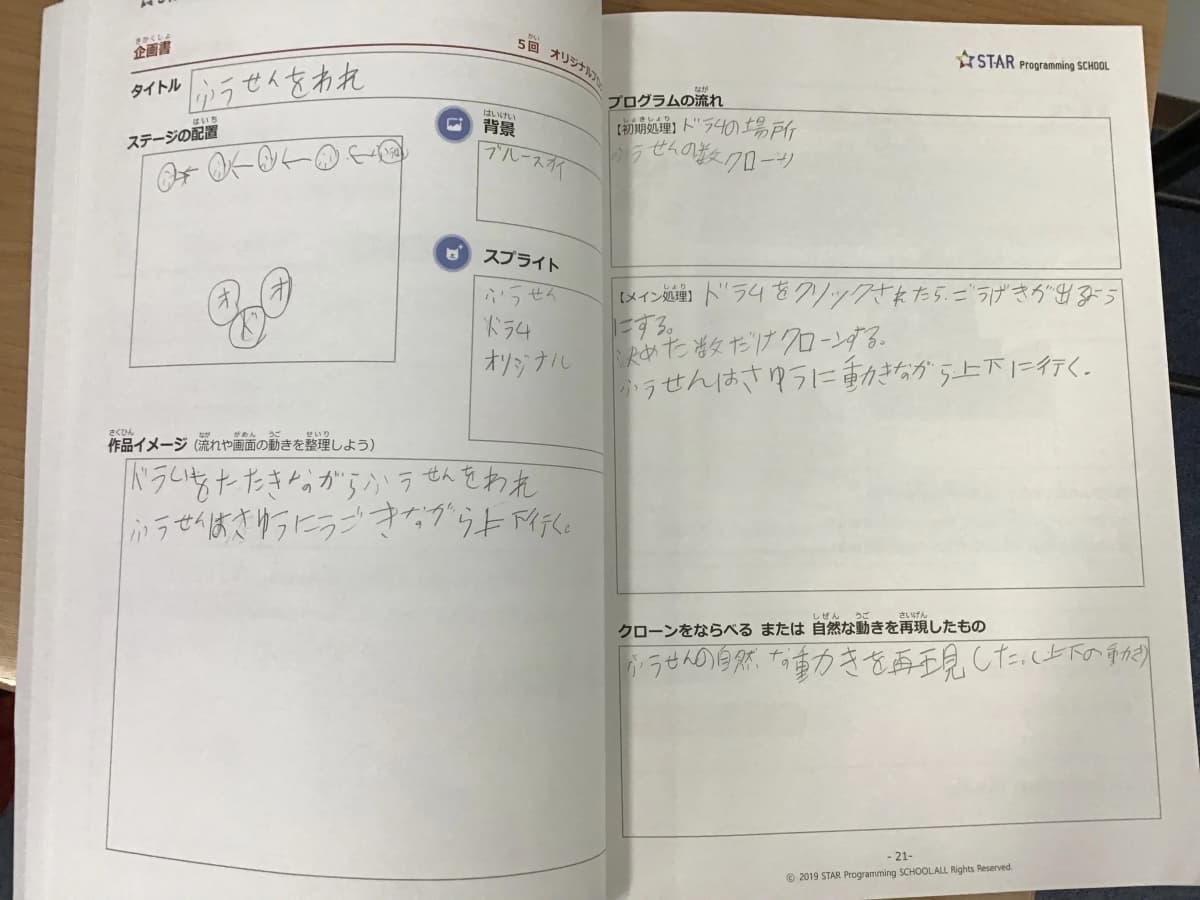 企画書
きかくしょ
5回 オリジナルプロ
かい
タイトル
ふうせんをわれ
ステージの配置
はいち
オ オ
ド
背景
はいけい
ブルースカイ
スプライト
ふうせん
ドラム
オリジナル
作品イメージ（流れや画面の動きを整理しよう）
さくひん なが がめん うご せいり
ドラムをたたきながらふうせんをわれ
ふうせんはさゆうにうごきながら上下行く。
STAR Programming SCHOOL
プログラムの流れ
なが
【初期処理】ドラムの場所
しょきしょり
ふうせんの数クローン
【メイン処理】ドラムをクリックされたら、ごうげきが出るよう
しょり
にする。
決めた数だけクローンする。
ふうせんはさゆうに動きながら上下に行く。
クローンをならべる または 自然な動きを再現したもの
しぜん うご さいげん
ふうせんの自然な動きを再現した。(上下の動き)
- 21-
© 2019 STAR Programming SCHOOL.ALL Rights Reserved.